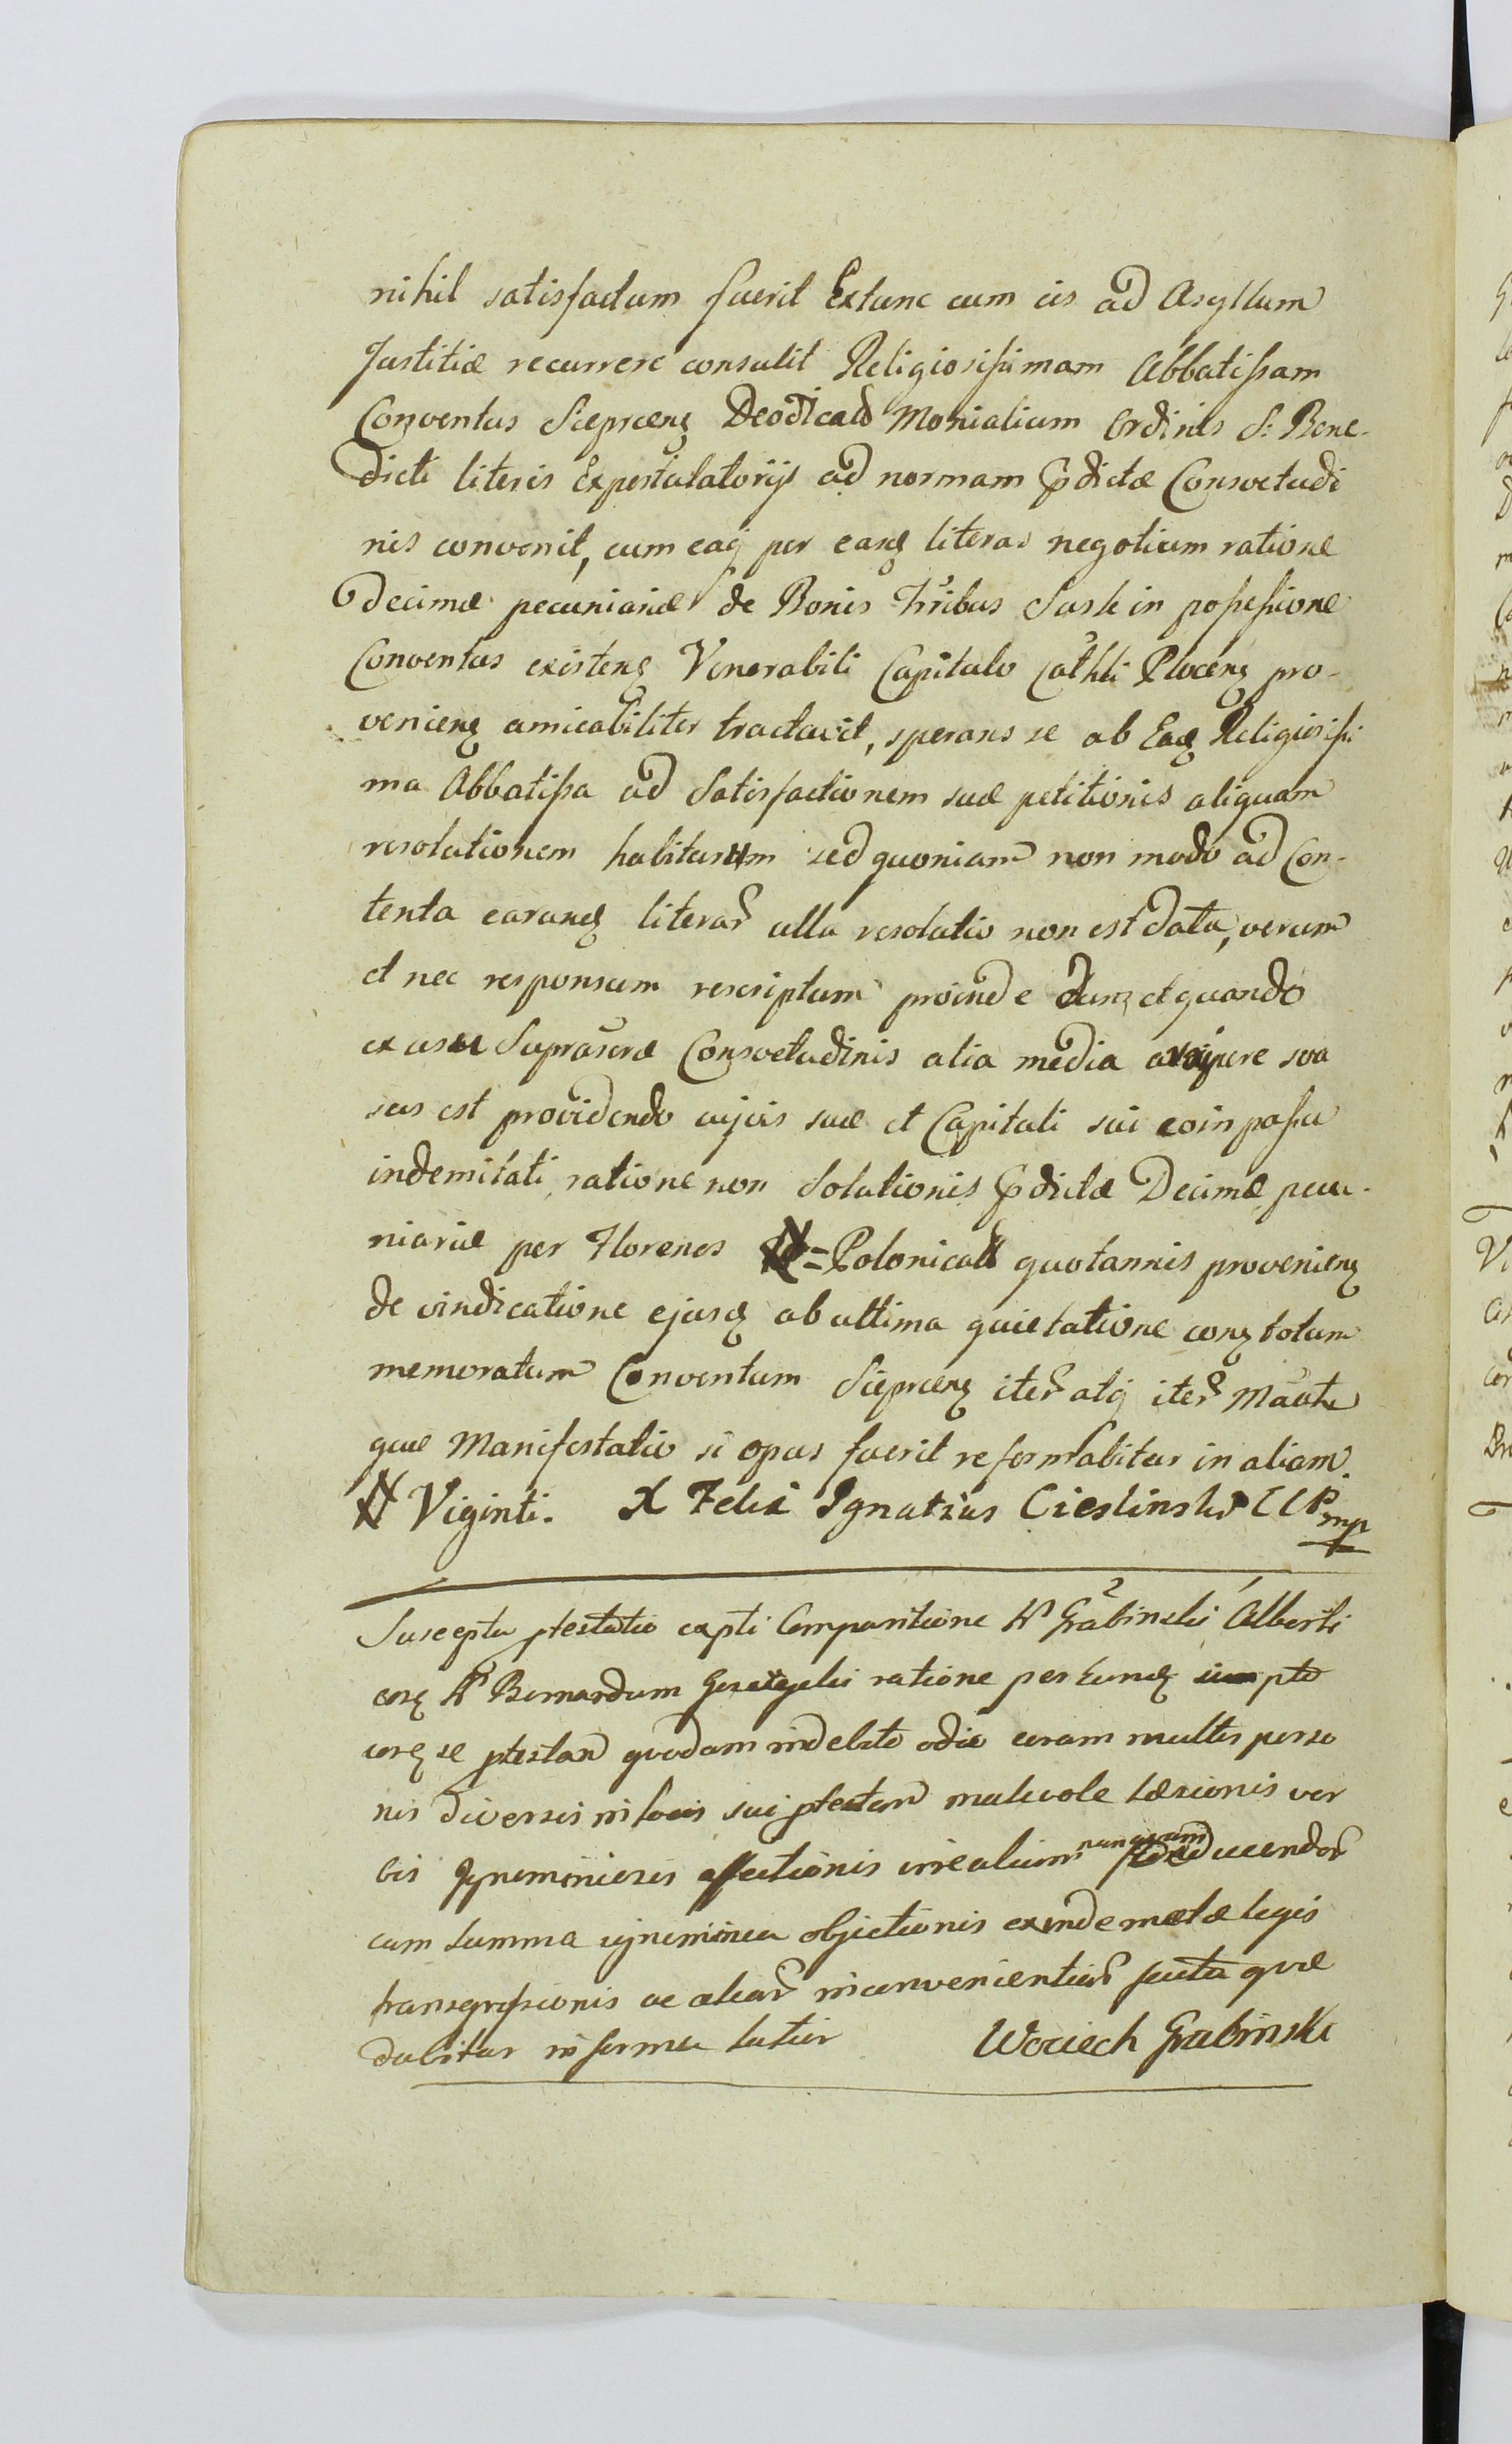 nihil satisfactum fuerit Extunc cum eis ad Asyllum
Justitiæ recurrere consulit Religiosissimam Abbatissam
Conventus Sieprcens Deodicatd Monialium Ordinis S: Bene-
dicti literis Expostulatorijs ad normam prdictæ Consvetudi
nis convenit, cum eaq per easq literas negotium ratione
Decimæ pecuniariæ de Bonis Tribus in possessione
Conventus existenq Venerabili Capitulo Cathli Plocenq pro-
venienq amicabiliter tractavit, sperans se ab Eaq Religiosissi
ma Abbatissa ad Satisfactionem suæ petitionis aliquam
resolutionem habiturum sed quoniam non modo ad Con-
tenta earunq literar ulla resolutio non est data, verum
et nec responsum rescriptum proinde et quando
ex usu Suprascræ Consvetudinis alia media arripere sva
sus est providendo sua et Capituli sui
indemitati, ratione non Solutionis prdictæ Decimæ pecu-
niariæ per Florenos N = Polonicales quotannis provenienq
de vindicatione ejusq ab ultima quietatione conq totum
memoratum Conventum Sieprcenq iter atq iter
quæ Manifestatio si opus fuerit reformabitur in aliam.
N Viginti. X Felix Ignatius Cieslinski CCP mp
Suscepta ptestatio expti Comparitione Grabinski Alberti
conq Bernardum ratione per Eunq
conq se ptestan quodam indebito odio coram multis perso
nis diversis in locis sui ptestan malevole læsionis ver
bis Ignominiosis affectionis irrealium nunquam deducendor
cum summa ignominia objectionis exinde metæ legis
transgressionis ac aliar inconvenientiar secuta quæ
dabitur in forma latior Wociech Grabinski